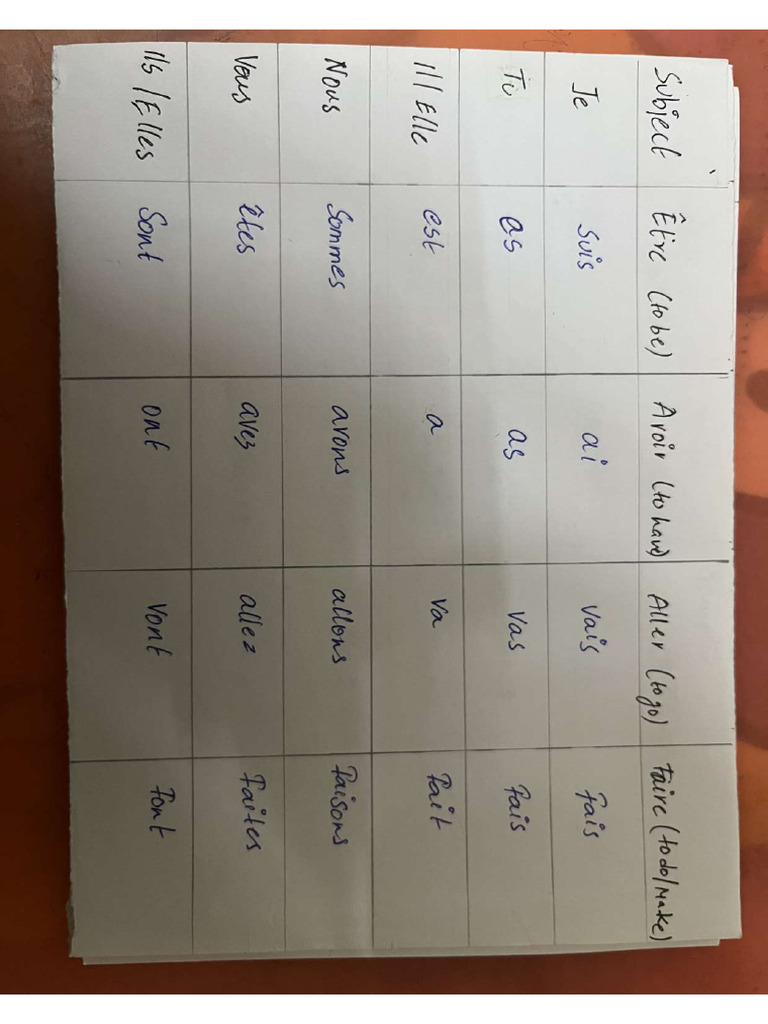 Subject Être (to be) Avoir (to have) Aller (to go) Faire (to do/Make)
Je suis ai vais Fais
Tu as as vas Fais
Il/Elle est a va Fait
Nous Sommes avons allons Faisons
Vous êtes avez allez Faites
Ils/Elles Sont ont vont Font